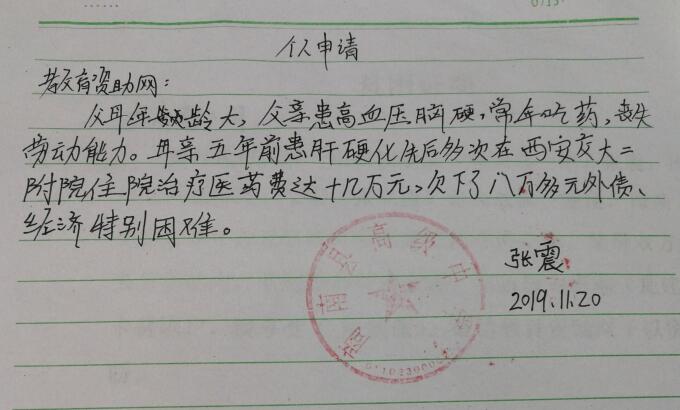 个人申请
教育资助网：
父母年龄大，父亲患高血压脑硬，常年吃药，丧失
劳动能力。母亲五年前患肝硬化先后多次在西安交大二
附院住院治疗医药费达十几万元，欠下了八万多元外债、
经济特别困难。
张震
2019.11.20
南县高级中